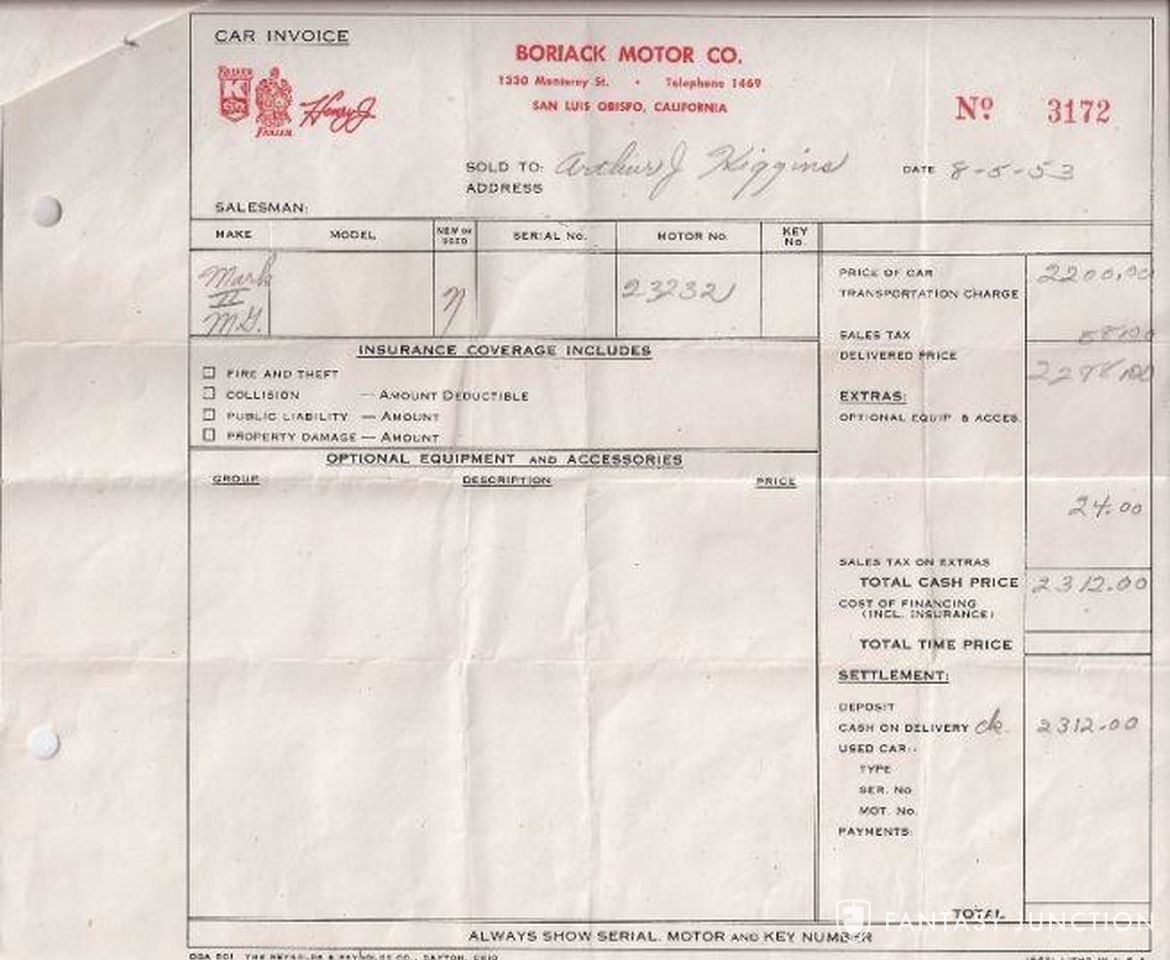 CAR INVOICE
BORJACK MOTOR CO.
1330 Monterey St. • Telephone 1469
SAN LUIS OBISPO, CALIFORNIA
KAISER K FRAZER Henry J
Nº 3172
SOLD TO: Arthur J Higgins DATE 8-5-53
ADDRESS
SALESMAN:
MAKE MODEL NEW OR USED SERIAL No. MOTOR No. KEY No.
Mark II M.G. n 23232
PRICE OF CAR 2200.00
TRANSPORTATION CHARGE
SALES TAX
DELIVERED PRICE
EXTRAS:
OPTIONAL EQUIP & ACCES.
24.00
SALES TAX ON EXTRAS
TOTAL CASH PRICE 2312.00
COST OF FINANCING
(INCL. INSURANCE)
TOTAL TIME PRICE
SETTLEMENT:
DEPOSIT
CASH ON DELIVERY ck 2312.00
USED CAR:-
TYPE
SER. No
MOT. No.
PAYMENTS:
TOTAL
INSURANCE COVERAGE INCLUDES
FIRE AND THEFT
COLLISION — AMOUNT DEDUCTIBLE
PUBLIC LIABILITY — AMOUNT
PROPERTY DAMAGE — AMOUNT
OPTIONAL EQUIPMENT AND ACCESSORIES
GROUP DESCRIPTION PRICE
ALWAYS SHOW SERIAL, MOTOR AND KEY NUMBER
THE REYNOLDS & REYNOLDS CO., DAYTON, OHIO
FANTASY JUNCTION